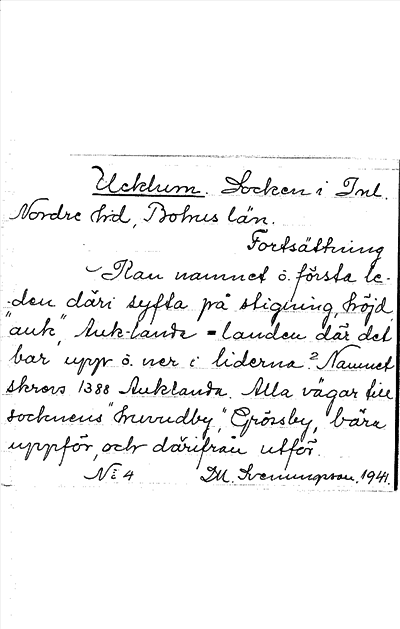 Ucklum. Socken i Inl.
Nordre hd, Bohus län.
Fortsättning
Kan namnet o. första le-
den däri syfta på stigning, höjd,
"auk", Auk-landa = landen där det
bar upp o. ner i liderna? Namnet
skrevs 1388 Auklanda. Alla vägar till
socknens huvudby, "Grössby, bära
uppför, och därifrån utför.
No 4 D.M. Svenungsson. 1941.